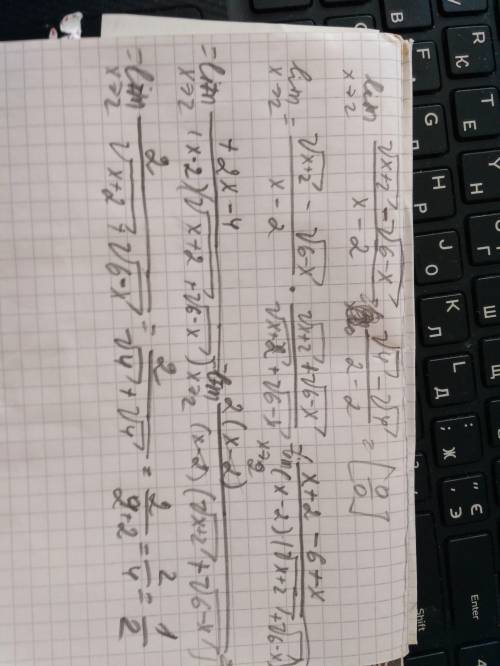 lim x→2 (√(x+2) - √(6-x))/(x-2) = (√4 - √4)/(2-2) = [0/0]
= lim x→2 (√(x+2) - √(6-x))/(x-2) · (√(x+2) + √(6-x))/(√(x+2) + √(6-x)) = lim x→2 (x+2-6+x)/((x-2)(√(x+2) + √(6-x)))
= lim x→2 (2x-4)/((x-2)(√(x+2) + √(6-x))) = lim x→2 2(x-2)/((x-2)(√(x+2) + √(6-x))) =
= lim x→2 2/(√(x+2) + √(6-x)) = 2/(√4 + √4) = 2/(2+2) = 2/4 = 1/2
Enter
Shift
Ctrl